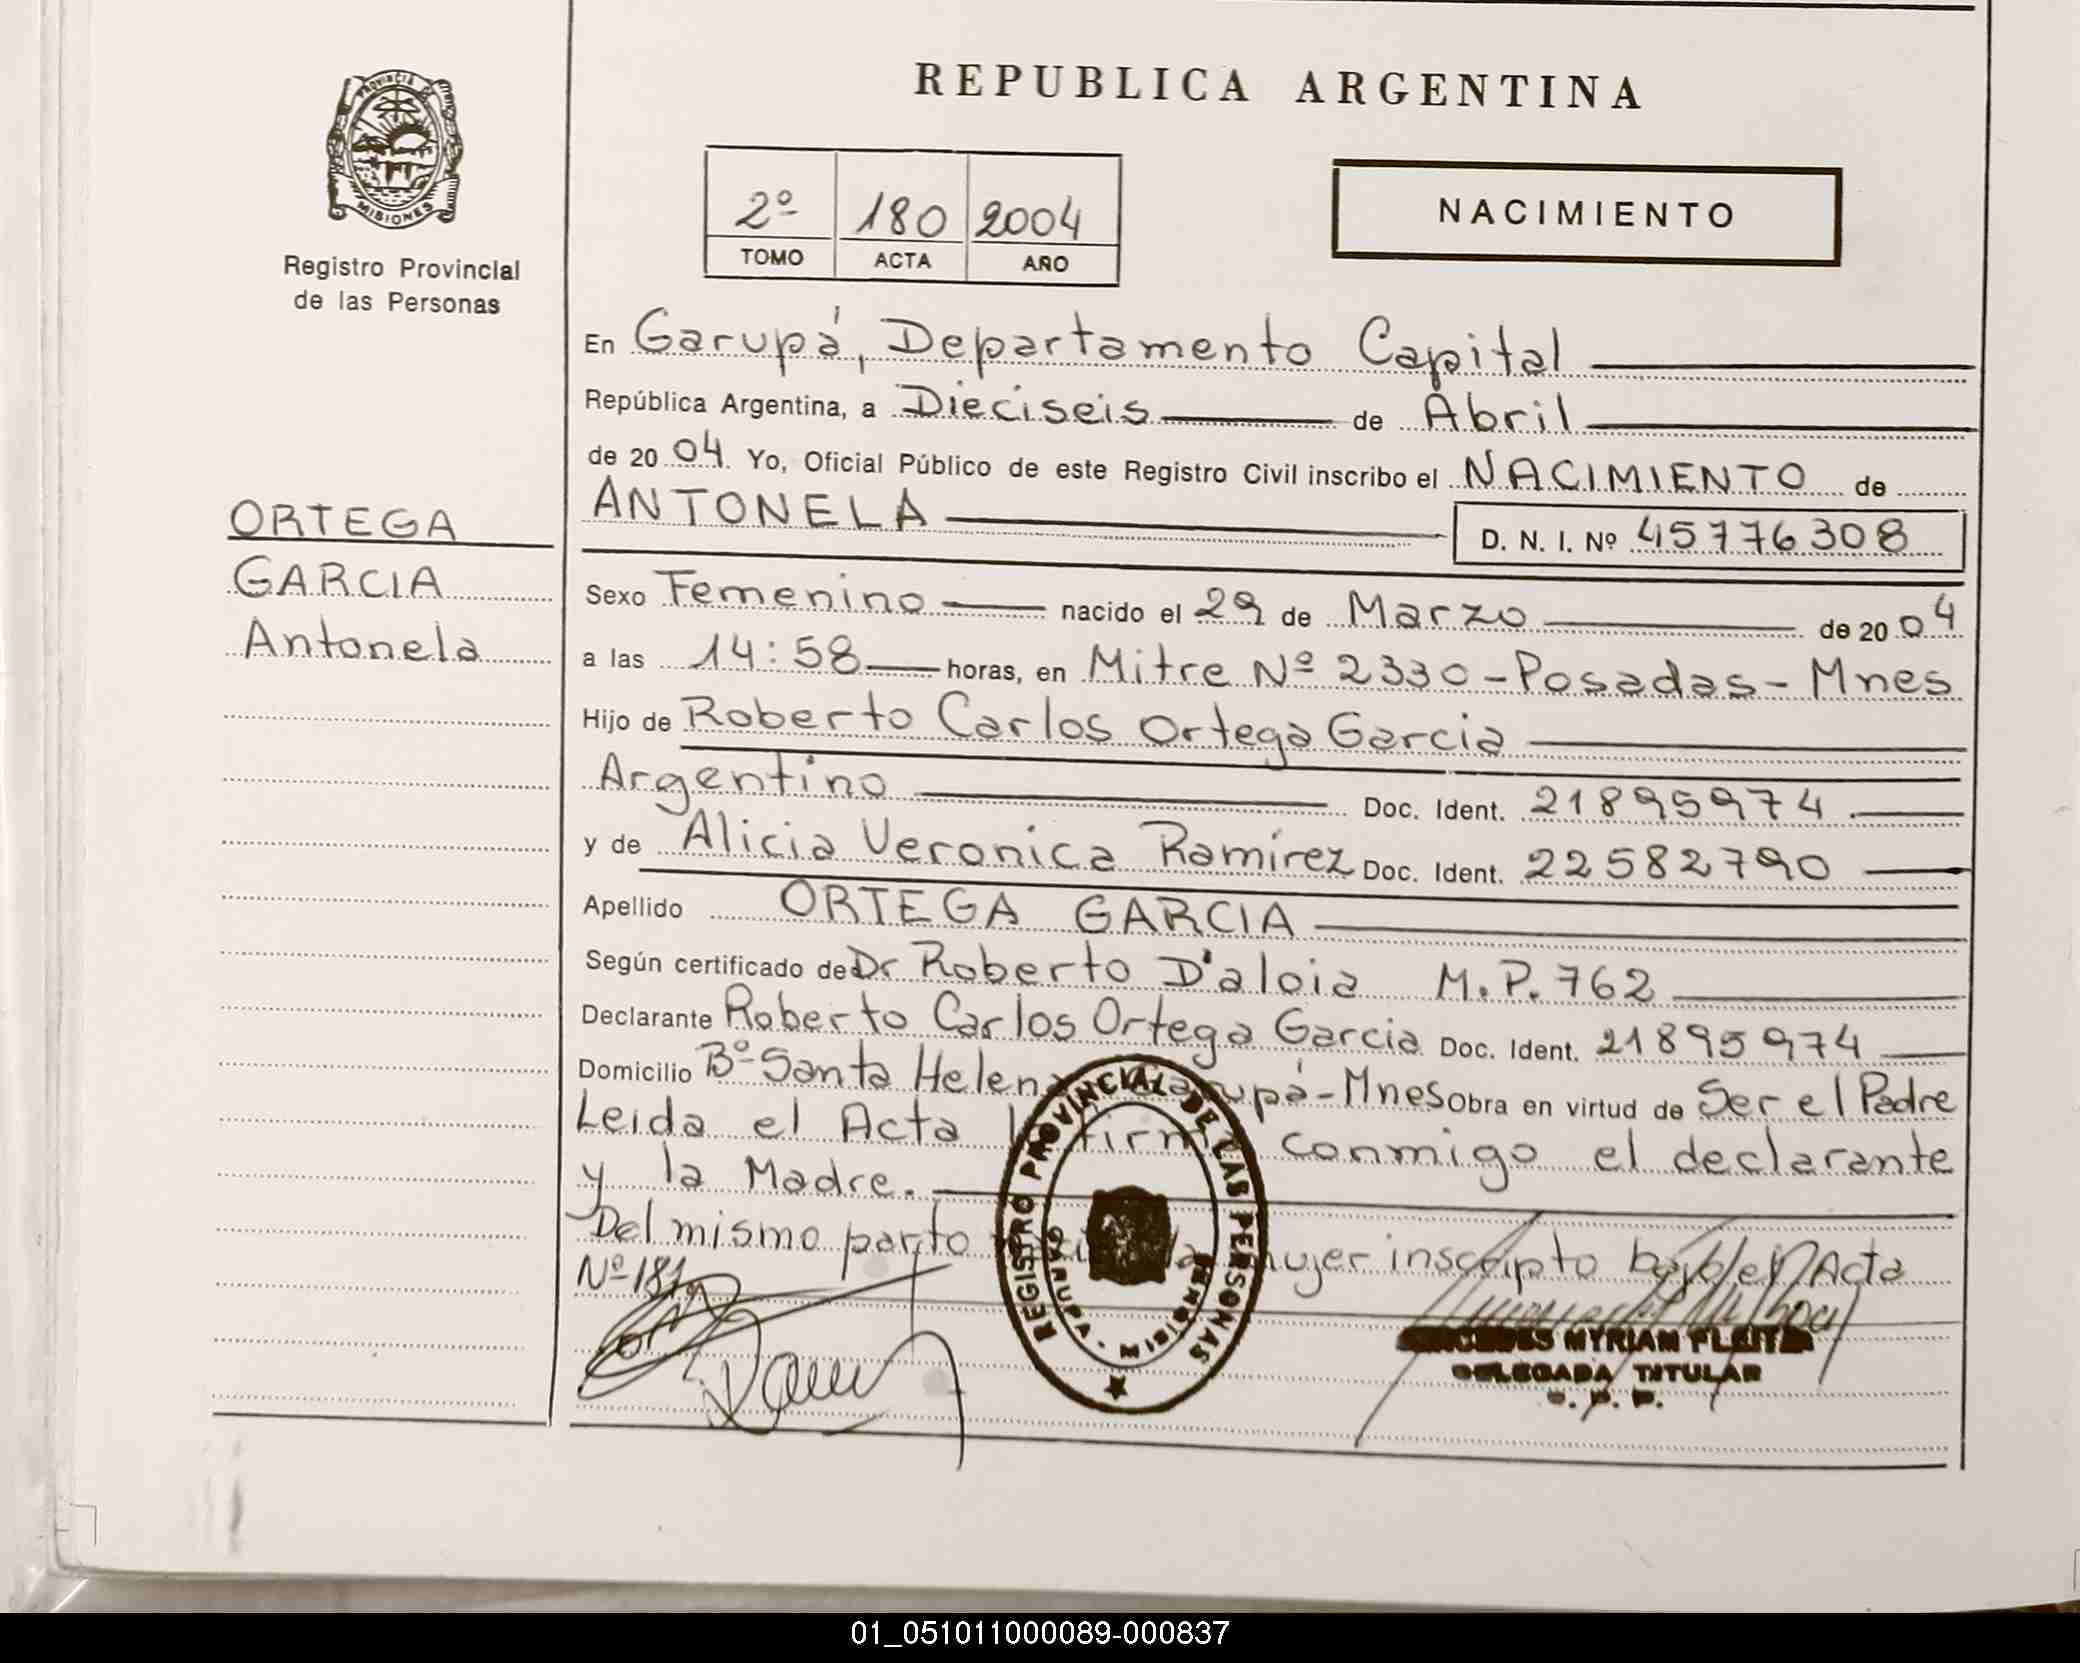 REPUBLICA ARGENTINA
PROVINCIA DE
MISIONES
Registro Provincial
de las Personas
2º 180 2004
TOMO ACTA AÑO
NACIMIENTO
En Garupá, Departamento Capital
República Argentina, a Dieciseis de Abril
de 2004. Yo, Oficial Público de este Registro Civil inscribo el NACIMIENTO de
ANTONELA D. N. I. Nº 45776308
ORTEGA
GARCIA
Antonela
Sexo Femenino nacido el 29 de Marzo de 2004
a las 14:58 horas, en Mitre Nº 2330-Posadas-Mnes
Hijo de Roberto Carlos Ortega Garcia
Argentino Doc. Ident. 21895974
y de Alicia Veronica Ramírez Doc. Ident. 22582790
Apellido ORTEGA GARCIA
Según certificado de Dr Roberto D'aloia M.P. 762
Declarante Roberto Carlos Ortega Garcia Doc. Ident. 21895974
Domicilio Bº Santa Helena Garupá-Mnes Obra en virtud de Ser el Padre
Leida el Acta firma conmigo el declarante
y la Madre.
Del mismo parto mujer inscripto bajo el Acta
Nº 181
REGISTRO PROVINCIAL DE LAS PERSONAS
GARUPA - MISIONES
MYRIAM
DELEGADA TITULAR
01_051011000089-000837